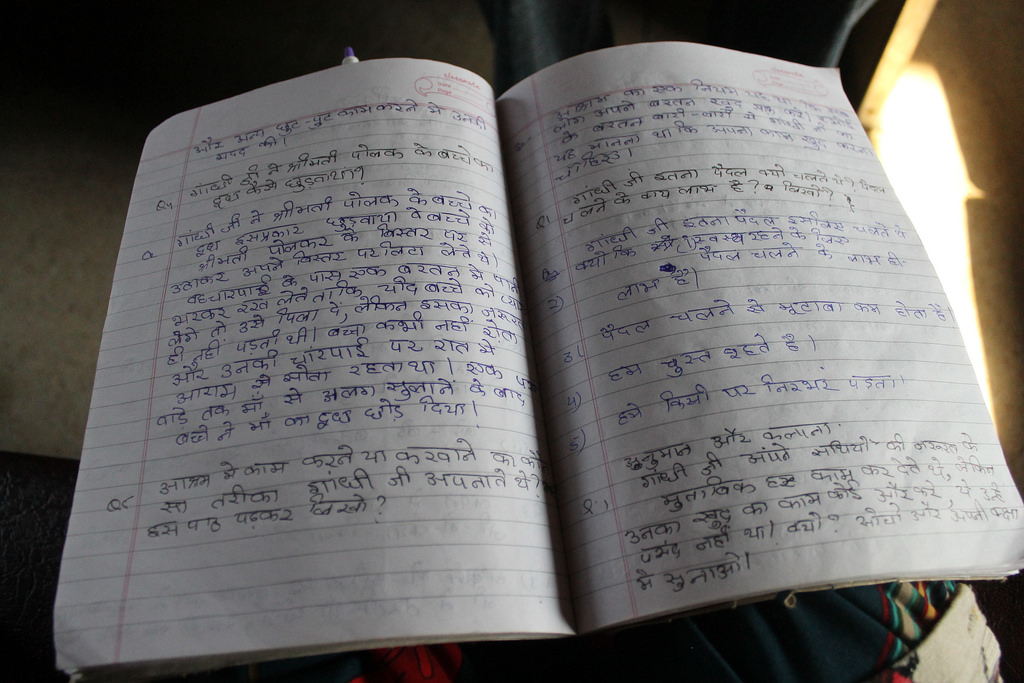 classmate
Date
Page
और अन्य छुट-पुट काम करने में उनकी
मदद की।
Q5 गांधी जी ने श्रीमती पोलक के बच्चे का
दूध कैसे छुड़वाया?
a गांधी जी ने श्रीमती पोलक के बच्चे का
दूध इसप्रकार छुड़वाया वे बच्चे को
श्रीमती पोलकर के बिस्तर पर से
उठाकर अपने बिस्तर पर लिटा लेते थे।
वह चारपाई के पास एक बरतन में पानी
भरकर रख लेते ताकि यदि बच्चे को प्यास
लगे तो उसे पिला दें, लेकिन इसकी जरूरत
ही नहीं पड़ती थी। बच्चा कभी नहीं रोता
और उनकी चारपाई पर रात में
आराम से सोता रहता था। एक
वाड़े तक माँ से अलग सुलाने के बाद
बच्चे ने माँ का दूध छोड़ दिया।
Q6 आश्रम में काम करने या करवाने का कौन
सा तरीका गांधी जी अपनाते थे?
इस पाठ पढ़कर लिखो?
classmate
Date
Page
काम का एक नियम यह था कि सब
लोग अपने बरतन खुद साफ करें।
के बरतन बारी-बारी से
यह मानना था कि अपना काम खुद करना
चाहिए।
Q1. गांधी जी इतना पैदल क्यों चलते थे? पैदल
चलने के क्या लाभ है? लिखो?
गांधी जी इतना पैदल इसीलिए चलते थे
क्यों कि स्वस्थ रहने के लिए
पैदल चलने के लाभ ही
2) लाभ हैं।
3। पैदल चलने से मुटाबा कम होता है
4) हम चुस्त रहते है।
5) हमे किसी पर निरभर पड़ता।
अनुमान और कल्पना.
Q1) गांधी जी अपने साथियो की जरूरत के
मुताबिक हर काम कर देते थे, लेकिन
उनका खुद का काम कोई और करे, ये उन्हें
पसंद नहीं था। क्यों? सोचो और अपनी कक्षा
मे सुनाओ।